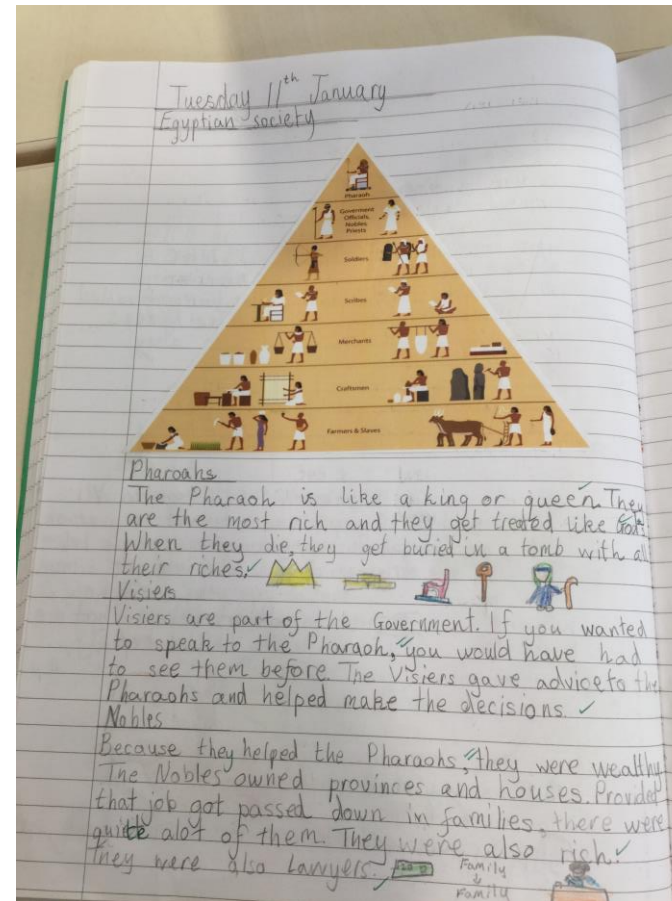 Tuesday 11th January
Egyptian society
Pharaoh
Goverment
Officials,
Nobles,
Priests
Soldiers
Scribes
Merchants
Craftsmen
Farmers & Slaves
Pharoahs
The Pharaoh is like a king or queen. They
are the most rich and they get treated like
When they die, they get buried in a tomb with all
their riches.
Visiers
Visiers are part of the Government. If you wanted
to speak to the Pharaoh, you would have had
to see them before. The Visiers gave advice to the
Pharaohs and helped make the decisions.
Nobles
Because they helped the Pharaohs, they were wealthy.
The Nobles owned provinces and houses. Provided
that job got passed down in families, there were
quite alot of them. They were also rich.
They were also Lawyers.
Family
Family